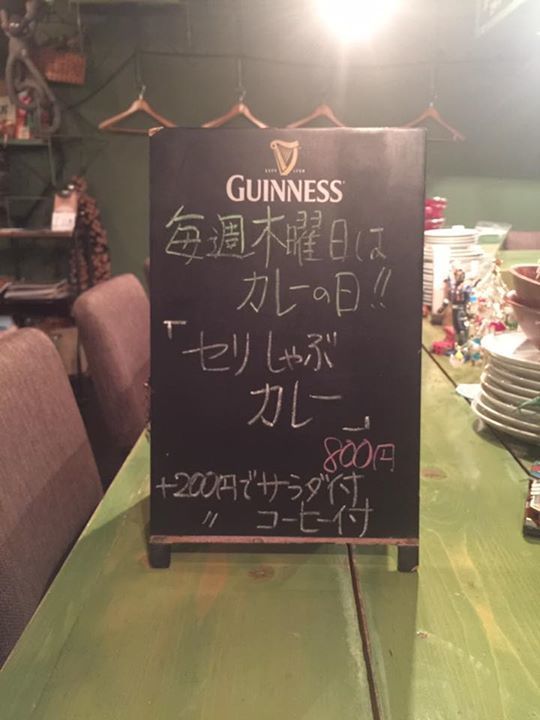 GUINNESS
毎週木曜日は
カレーの日!!
「セリしゃぶ
カレー」
800円
+200円でサラダ付
〃 コーヒー付